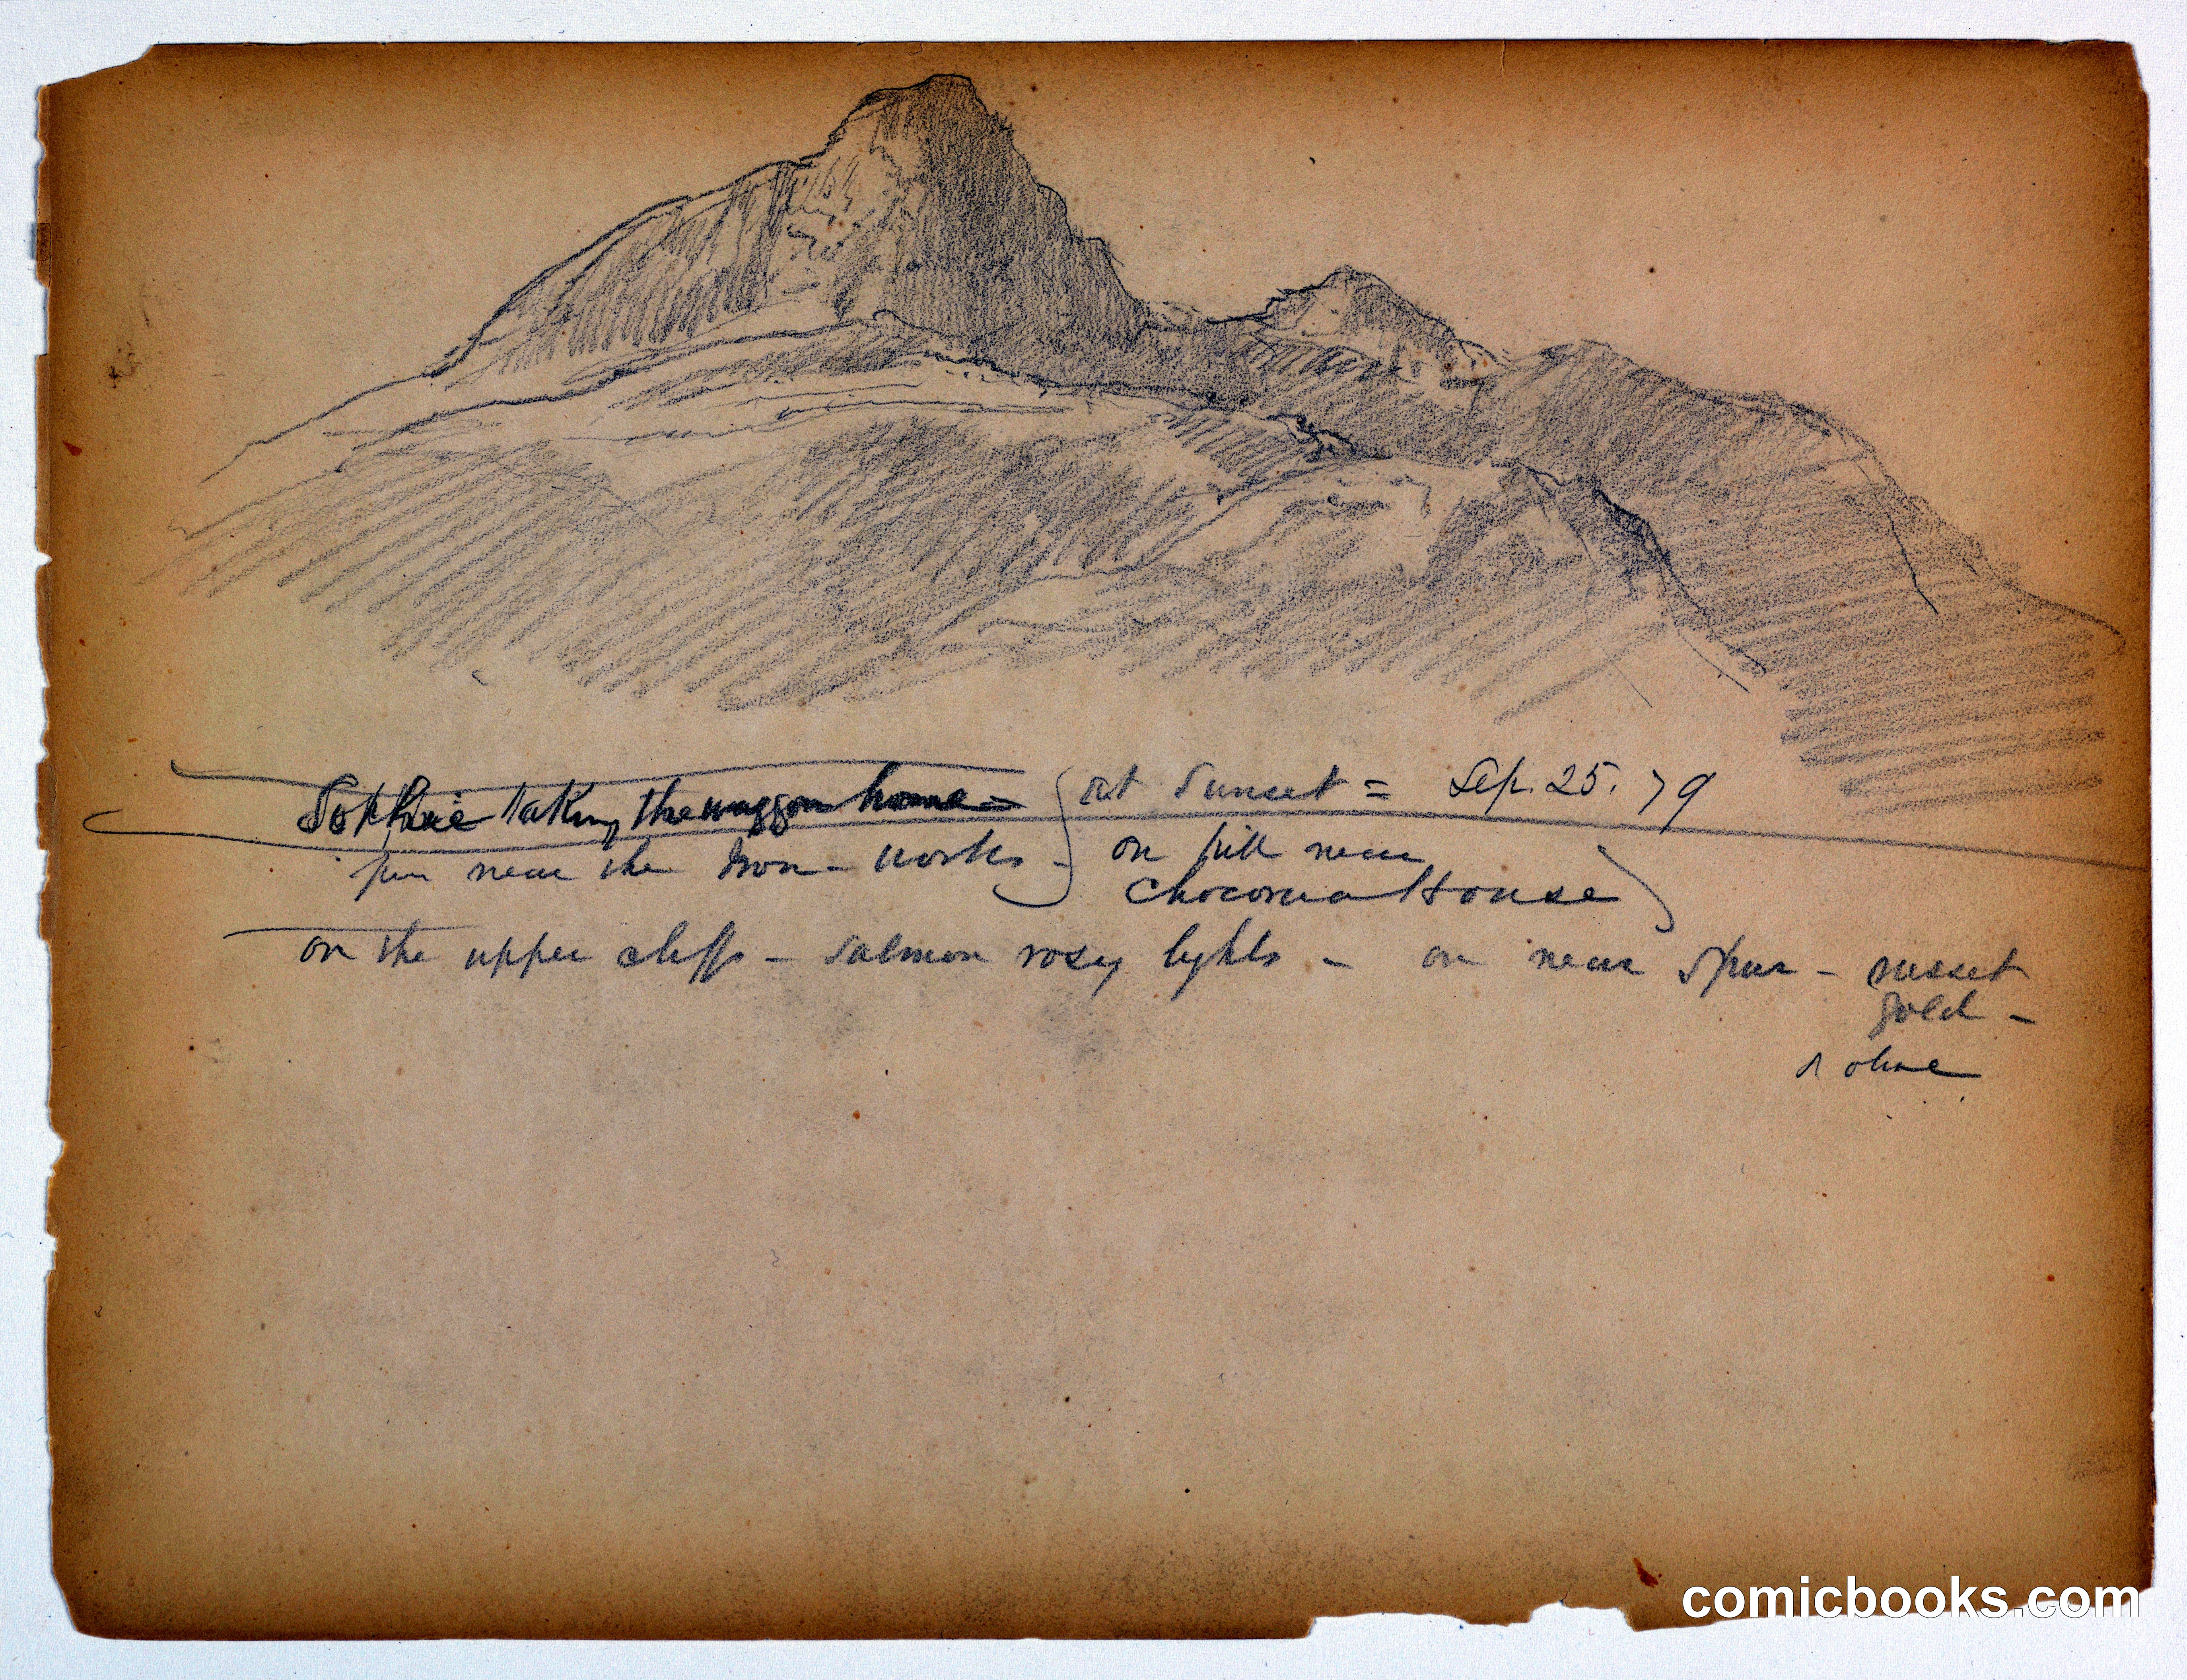 Sophie taking the waggon home = at Sunset = Sep. 25. 79
near the Iron-works - on hill near
Chocorua House
on the upper cliffs - salmon rosy lights - on near spur - russet
gold -
& olive
comicbooks.com